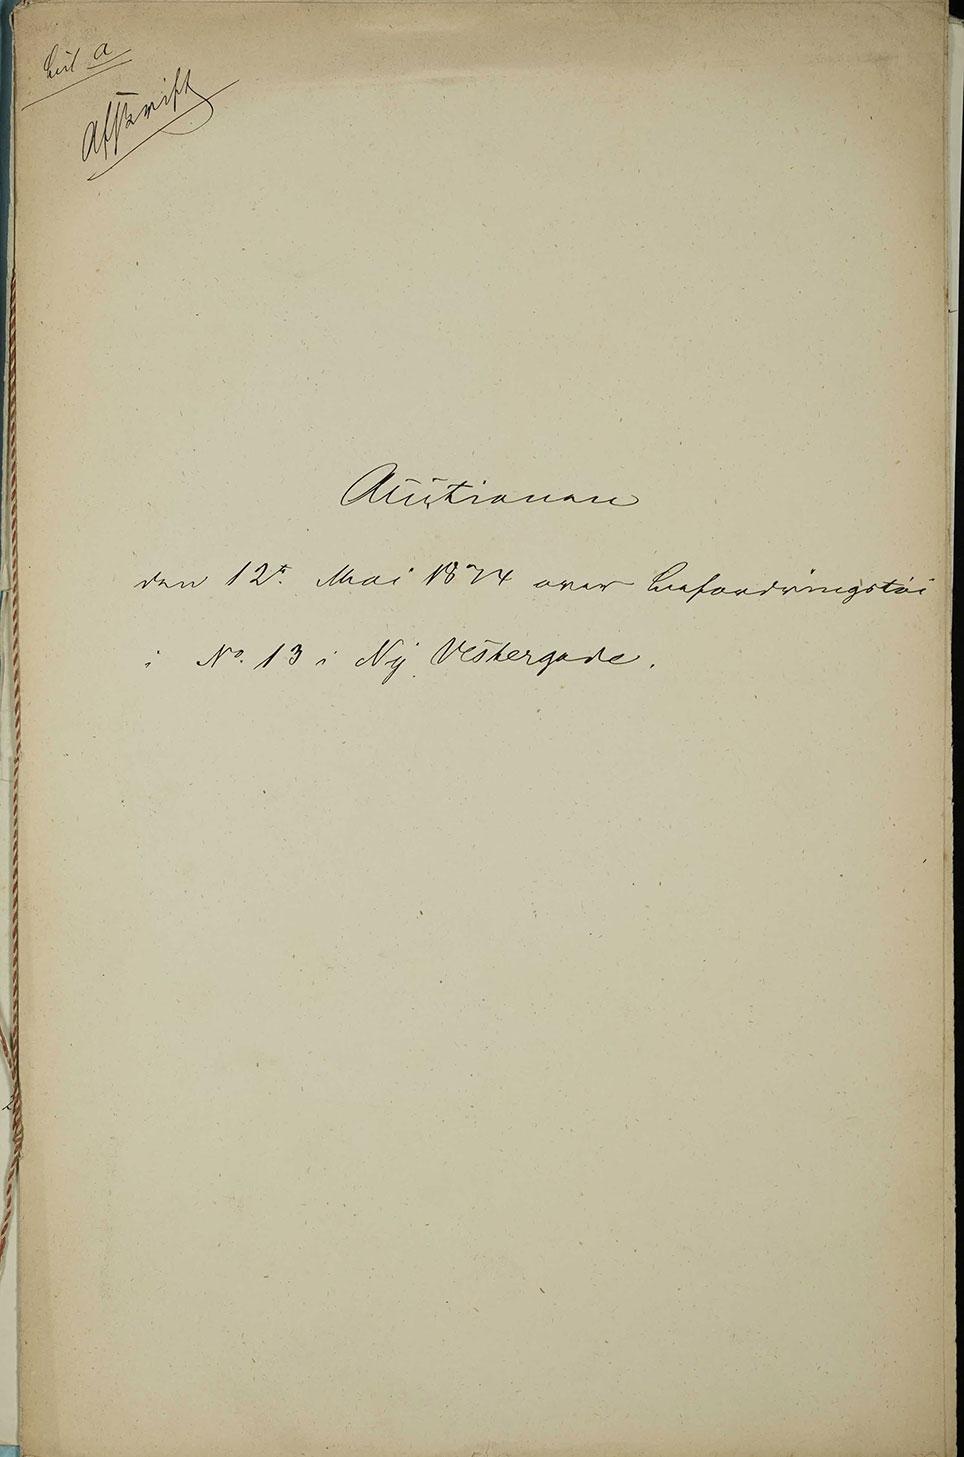 Lit a
Afskrift
Auctionen
den 12te Mai 1874 over Befordringstøi
i No. 13 i Ny Vestergade.
2